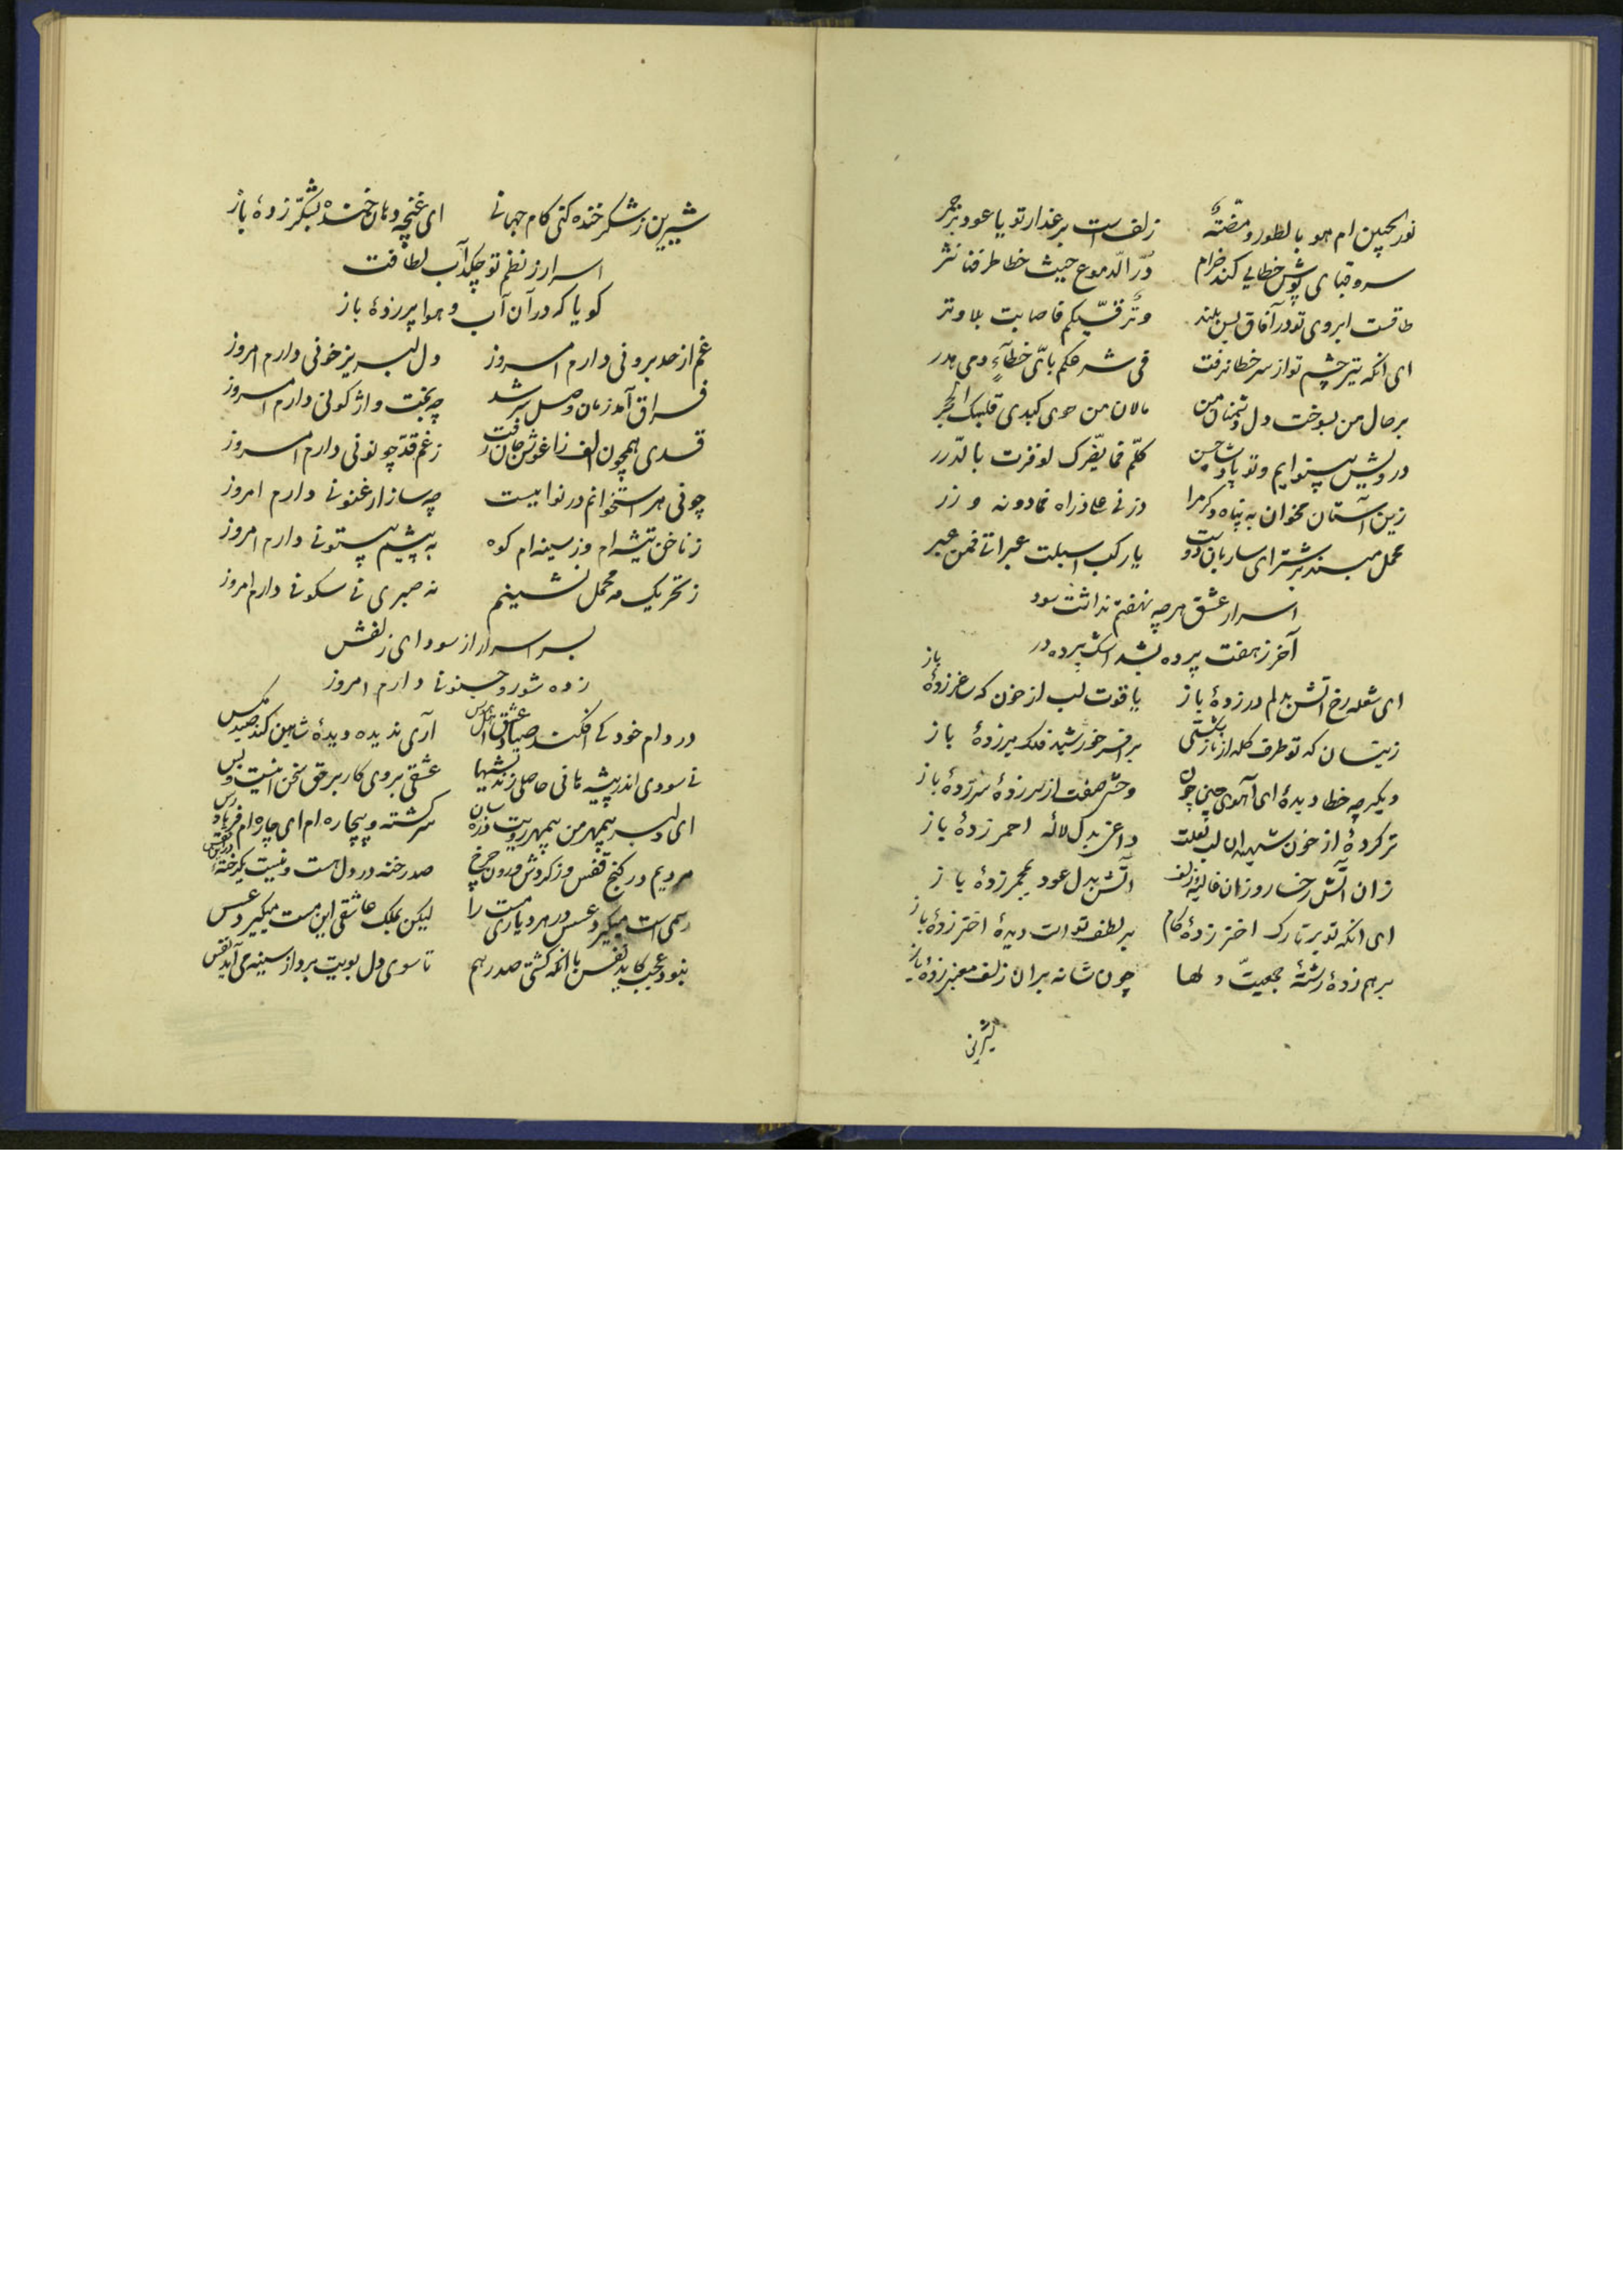 نور الجبین ام هو بالطور ومضتهٌ زلف است بر عذار تو یا عود بر جمر
سرو قبای پوش خطایی کند خرام درّ الدموع حیث خطا طرفنا نثر
طاقست ابروی تو در آفاق بس بلند وترٌ قسیّکم فاصابت بلا وتر
ای انکه تیر چشم تو از سر خطا نرفت فی شرعکم بایّ خطآءٍ دمی هدر
بر حال من بسوخت دل دشمنان من مالان من حوی کبدی قلبک الحجر
درویش بینوایم و تو پادشاه حسن کلّم فما یضّرک لو فزت بالدّرر
زین آستان مخوان به پناه دگر مرا
محمل مبند بر شتر ای ساربان دوست یا رکب اسبلت عبراتی فمن عبر
اسرار عشق هر چه نهفتم نداشت سود
آخر ز هفت پرده بشد اشک پرده در
ای شعله رخ آتش بدلم در زدهٔ باز یاقوت لب از خون که ساغر زدهٔ باز
زینسان که تو طرف کله از ناز شکستی بر افسر خورشید فلک بر زدهٔ باز
دیگر چه خطا دیدهٔ ای آهوی چین چون وحشی صفت از سر زدهٔ سر زدهٔ باز
تر کردهٔ از خون شهیدان لب لعلت داغم بدل لاله احمر زدهٔ باز
زان آتش رخسار و زان غالیهٔ زلف آتش بدل عود بمجمر زدهٔ باز
ای انکه تو بر تارک اختر زدهٔ گام بر لطف تو است دیدهٔ اختر زدهٔ باز
برهم زدهٔ رشتهٔ جمعیّت دلها چون شانه بران زلف معنبر زدهٔ باز
شیرین
شیرین ز شکر خنده کنی کام جهانی ای غنچه دهان خنده بشکّر زدهٔ باز
اسرار ز نظم تو چکد آب لطافت
گویا که در آن آب و هوا پر زدهٔ باز
غم از حد برونی دارم امروز دل لبریز خونی دارم امروز
فراق آمد زمان وصل سر شد چه بخت واژگونی دارم امروز
قدی همچون الف ز اغوش جان رفت ز غم قدّ چو نونی دارم امروز
چو نی هر استخوانم در نوا بیست چه ساز ارغنونی دارم امروز
ز ناخن تیشه ام وز سینه ام کوه به پیشم بیستونی دارم امروز
ز تحریک مه محمل نشینم نه صبری نی سکونی دارم امروز
بسر اسرار از سودای زلفش
زده شور و جنونی دارم امروز
در دام خود کی افکند صیاد عشق اهل هوس آری ندیده دیدهٔ شاهین کند صید مگس
نی سودی اندر پیشه ها نی حاصلی ز اندیشها عشقی بروی کار بر حق سخن اینست و بس
ای دلبر بیمهر من بیمهر رویت ذره سان سرگشته و بیچاره ام ای چاره ام فریاد رس
مردیم در کنج قفس وز گردش دون چرخ صد رخنه در دل هست و نیست یک رخنه در قفس
رسمی است میگیرد عسس در هر دیاری مست را لیکن بملک عاشقی این مست میگیرد عسس
نبود عجب کاید نفس با انکه گشتی صدر هم تا سوی دل بویت برد از سینه می آید نفس